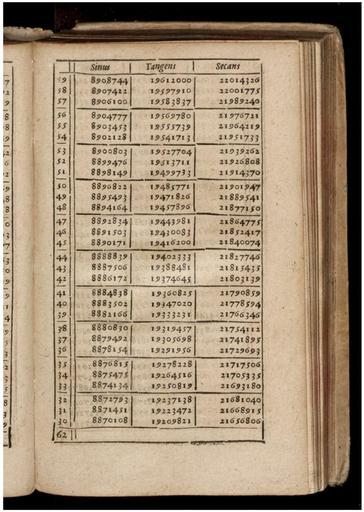 Sinus Tangens Secans
59 8908744 19612000 22014326
58 8907422 19597910 22001775
57 8906100 19583837 21989240
56 8904777 19569780 21976721
55 8903453 19555739 21964219
54 8902128 19541713 21951733
53 8900803 19527704 21939262
52 8899476 19513711 21926808
51 8898149 19499733 21914370
50 8896822 19485771 21901947
49 8895493 19471826 21889541
48 8894164 19457896 21877150
47 8892834 19443981 21864775
46 8891503 19430083 21852417
45 8890171 19416200 21840074
44 8888839 19402333 21827746
43 8887506 19388481 21815435
42 8886172 19374645 21803139
41 8884838 19360825 21790859
40 8883502 19347020 21778594
39 8882166 19333231 21766346
38 8880830 19319457 21754112
37 8879492 19305698 21741895
36 8878154 19291956 21729693
35 8876815 19278228 21717506
34 8875475 19264516 21705335
33 8874134 19250819 21693180
32 8872793 19237138 21681040
31 8871451 19223472 21668915
30 8870108 19209821 21656806
62